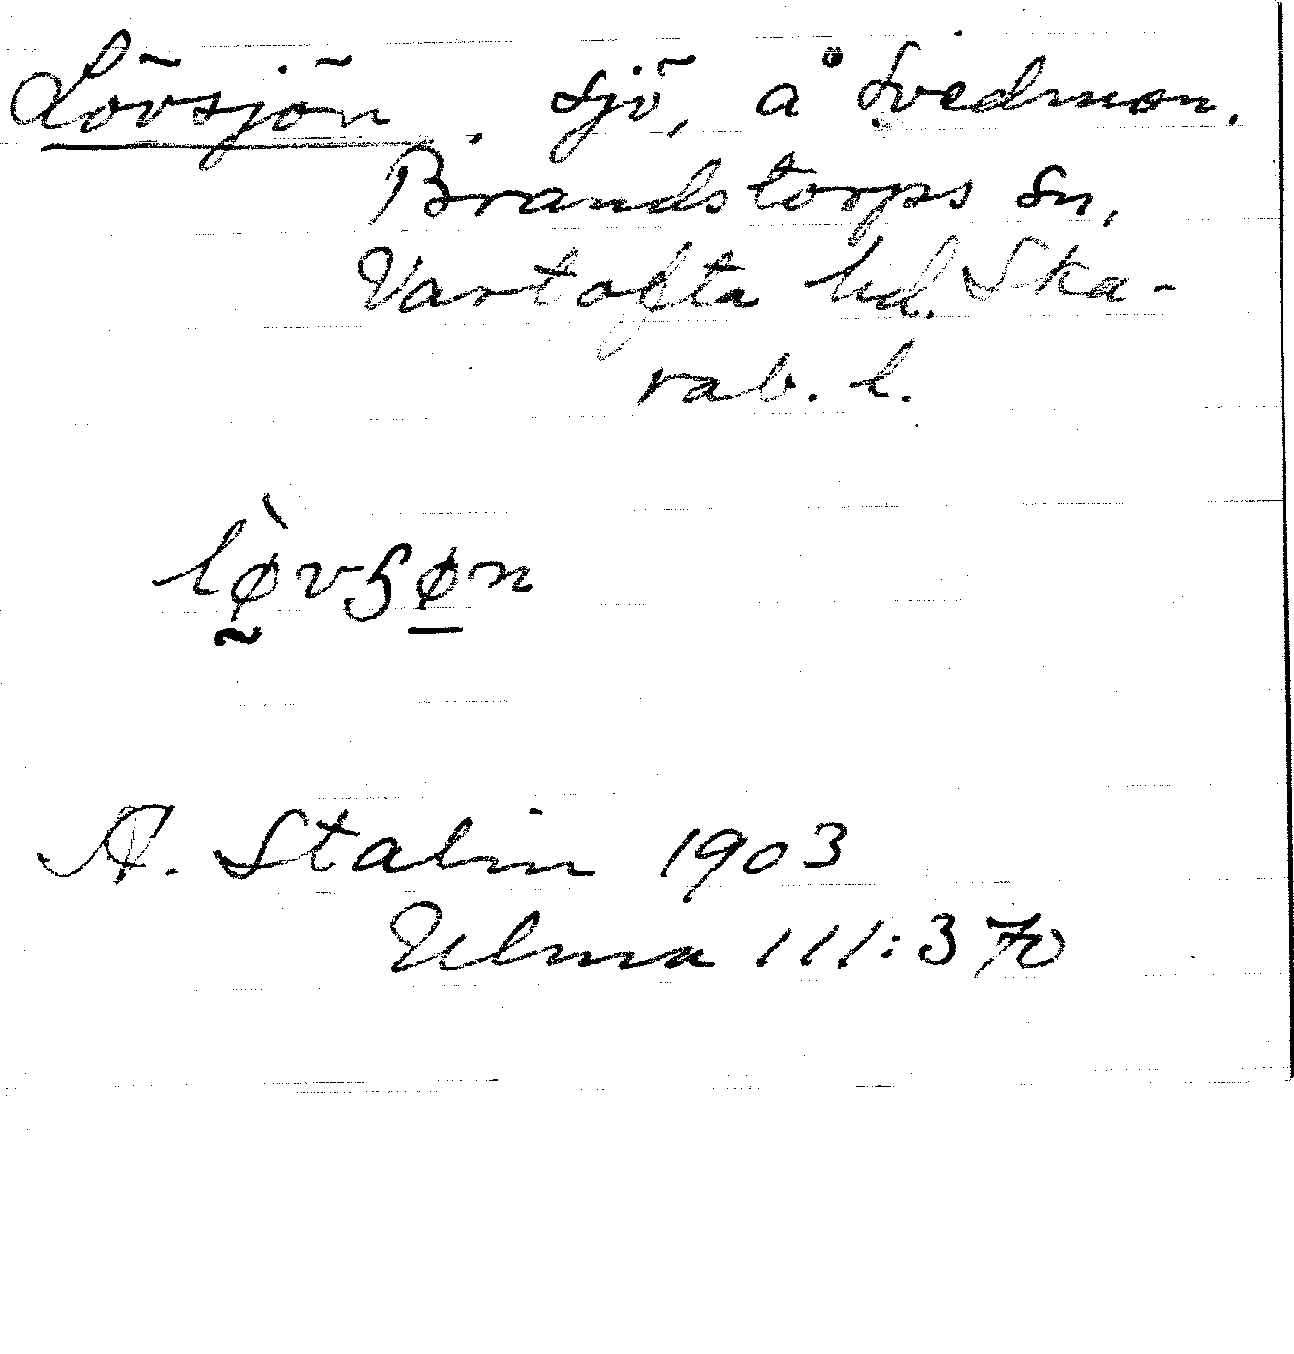 Lövsjön. sjö, å Svedmon.
Brandstorps sn,
Vartofta hd. Ska-
rab. l.
lø̀vꞩøn
A. Stalin 1903
Ulma 111:370